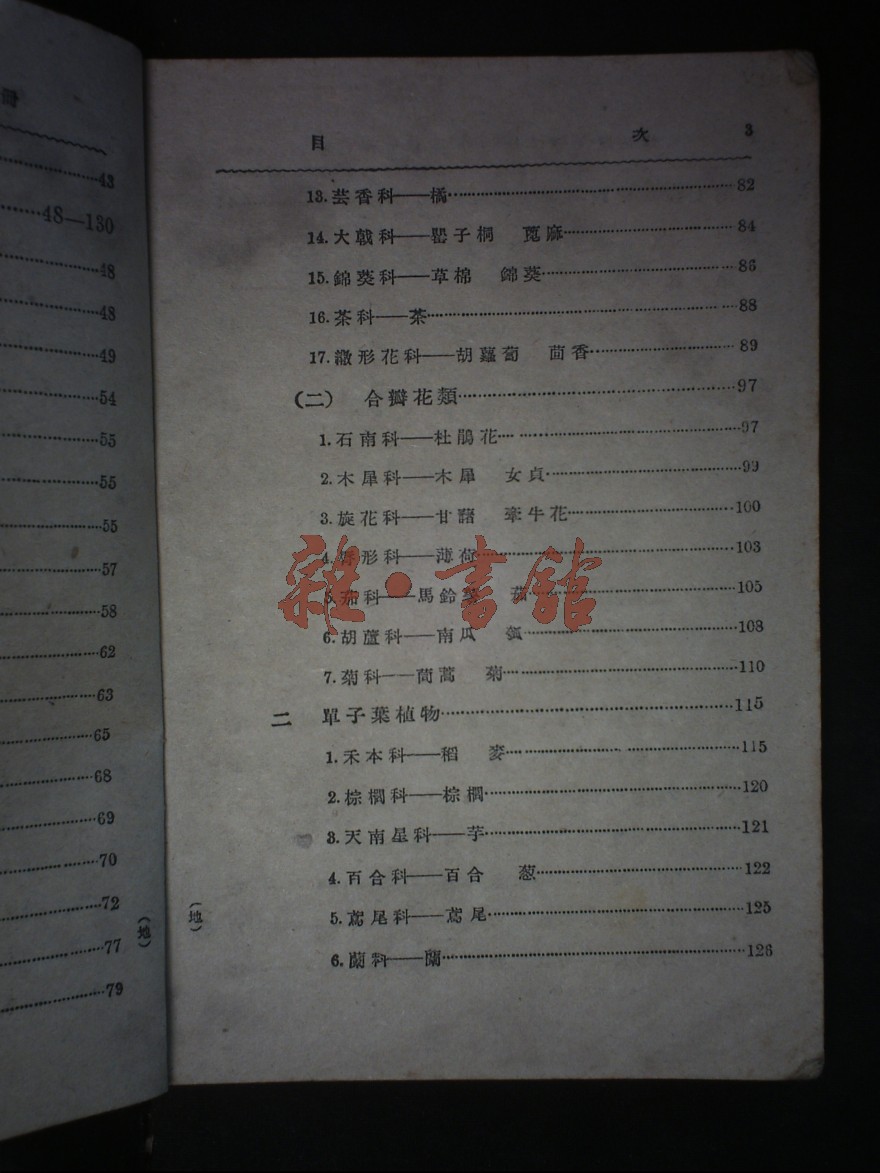 43
48—130
48
48
49
54
55
55
55
57
58
62
63
65
68
69
70
72
77
79
(地)
目 次 3
13. 芸香科——橘 82
14. 大戟科——罌子桐 蓖麻 84
15. 錦葵科——草棉 錦葵 86
16. 茶科——茶 88
17. 繖形花科——胡蘿蔔 茴香 89
(二) 合瓣花類 97
1. 石南科——杜鵑花 97
2. 木犀科——木犀 女貞 99
3. 旋花科——甘藷 牽牛花 100
4. 脣形科——薄荷 103
5. 茄科——馬鈴薯 茄 105
6. 胡蘆科——南瓜 瓠 108
7. 菊科——茼蒿 菊 110
二 單子葉植物 115
1. 禾本科——稻 麥 115
2. 棕櫚科——棕櫚 120
3. 天南星科——芋 121
4. 百合科——百合 葱 122
5. 鳶尾科——鳶尾 125
6. 蘭科——蘭 126
(地)
雜·書館